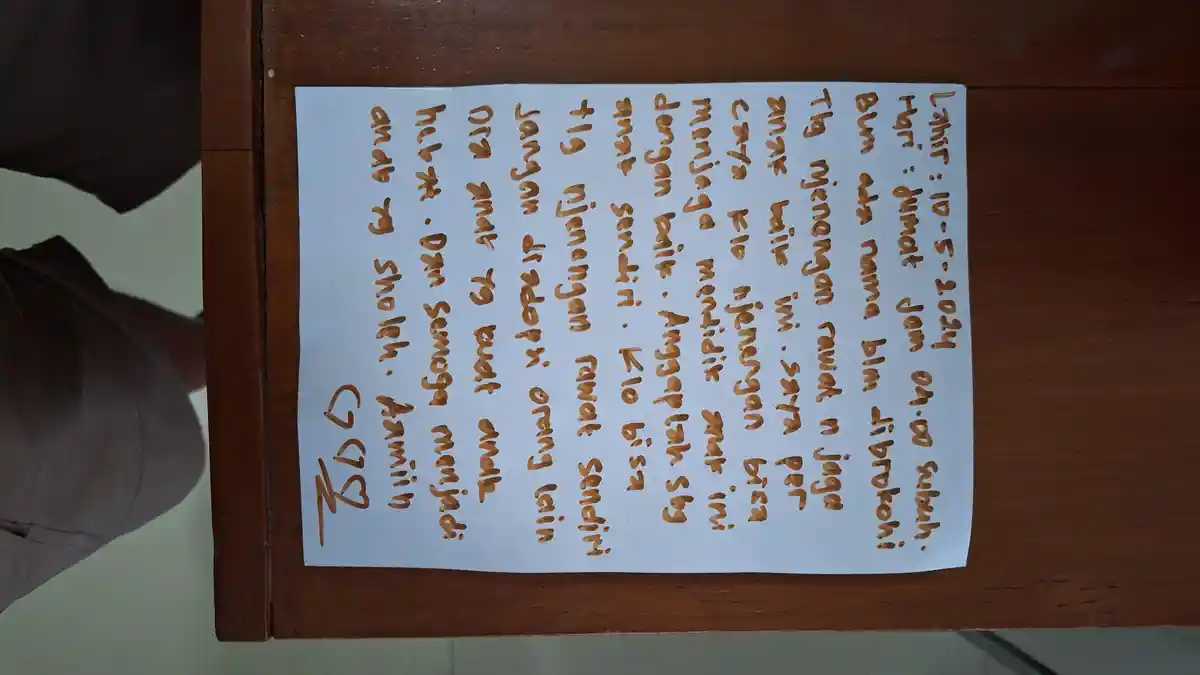 Lahir : 10-5-2024
Hari : Jumat Jam 04.00 Subuh.
Blm ada nama blm dibrokohi
Tlg njenengan rawat n jaga
anak baik ini. saya per
caya klo njenengan bisa
menjaga mendidik anak ini
dengan baik. Anggaplah sbg
anak sendiri. Klo bisa
tlg njenengan rawat sendiri
Jangan diadopsi orang lain
Dia anak yg kuat anak
hebat. Dan semoga menjadi
anak yg sholeh. Aamiin